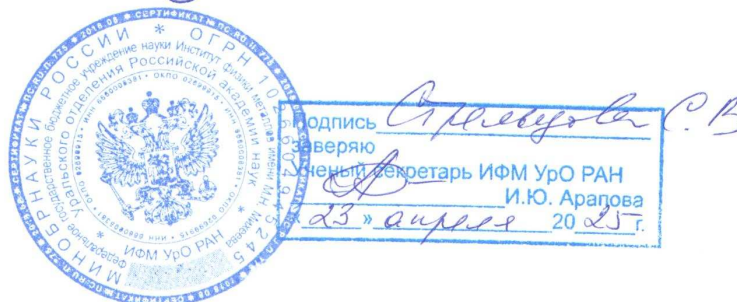 МИНОБРНАУКИ РОССИИ * ОГРН
Федеральное государственное бюджетное учреждение науки Институт физики металлов имени М.Н. Михеева
Уральского отделения Российской академии наук
ИФМ УрО РАН
Подпись Стрельцова С.В
заверяю
Ученый секретарь ИФМ УрО РАН
И.Ю. Арапова
« 23 » апреля 20 25 г.